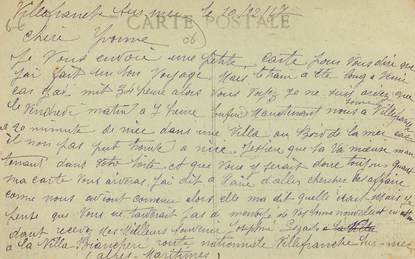 Villefranche sur mer le 20/12/17
CARTE POSTALE
Chère Yvonne
06
Je vous envoie une petite carte pour vous dire que
j'ai fait un bon voyage mais le train a été long a venir
car a mit 34 heure alors vous voyez je ne suis arrivé que
le vendredi matin a 7 heure enfin maintenant nous a Villefranche
a 20 minute de nice dans une villa au bord de la mer car
il non pas put trouvé a nice. J'espère que sa va mieux main
tenant dans votre boite et que vous y serait donc toujours quand
ma carte vous arrivera j'ai dit a d'aller chercher les affaire
come nous avions convenue alors elle ma dit quelle irait mais je
pense que vous ne tarderait pas a de vos bonne nouvelle en
dont recevez mes meilleurs souvenir Josephine
a la Villa route nationale Villefranche sur-mer
(alpes-Maritimes)